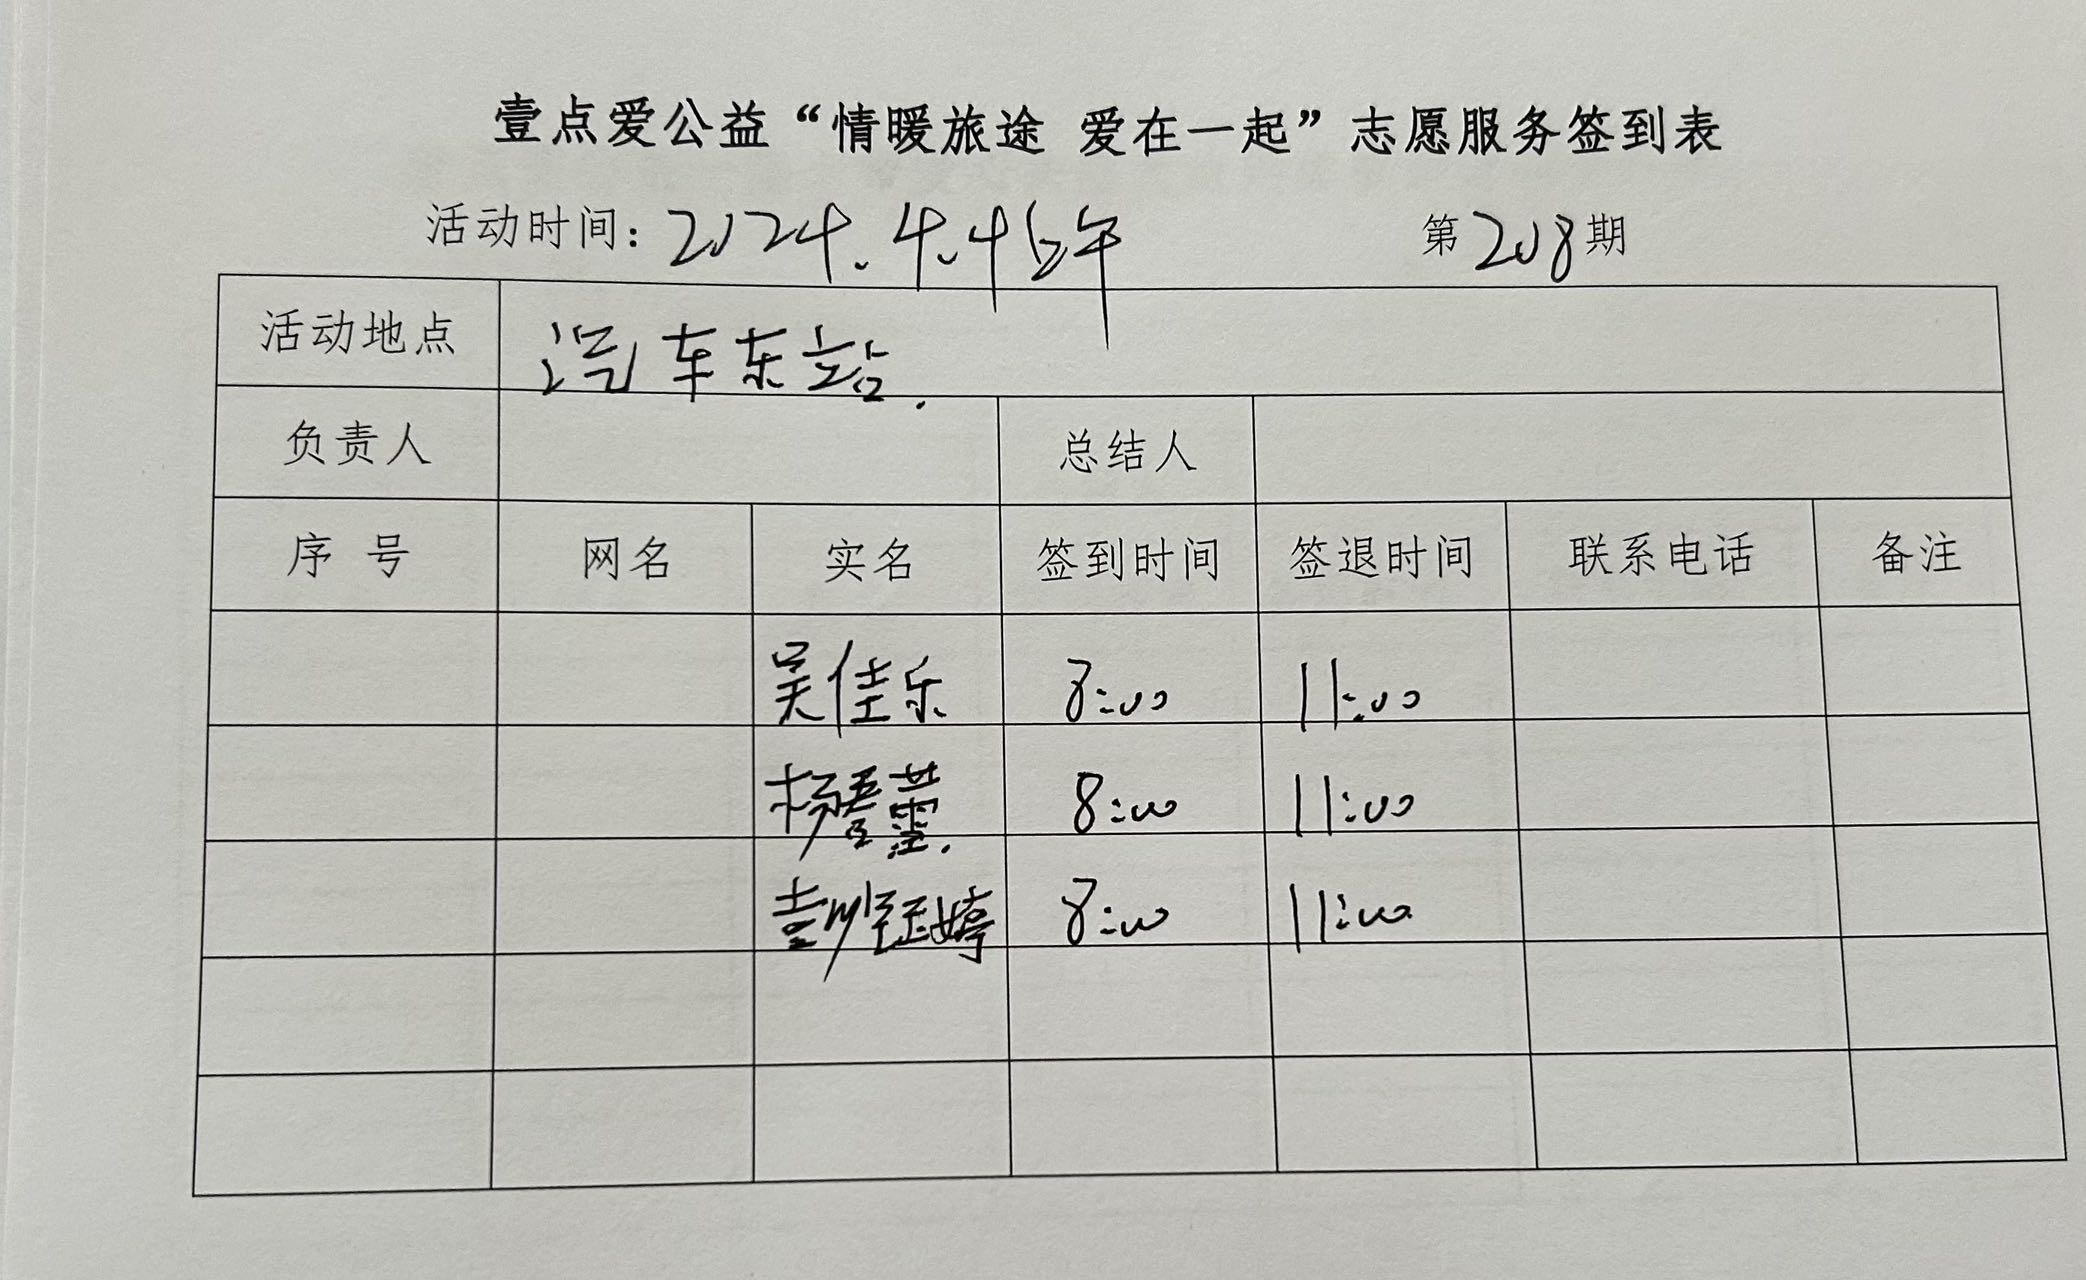 壹点爱公益“情暖旅途 爱在一起”志愿服务签到表
活动时间：2024.4.4上午 第208期
活动地点 汽车东站.
负责人 总结人
序 号 网名 实名 签到时间 签退时间 联系电话 备注
吴佳乐 8:00 11:00
8:00 11:00
婷 8:00 11:00